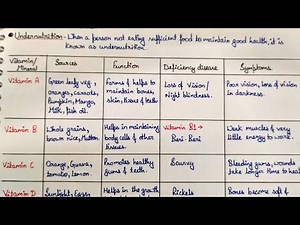 Undernutrition- When a person not eating sufficient food to maintain good health, it is
known as undernutrition.
Vitamin/
Mineral
Sources
Function
Deficiency disease
Symptoms
Vitamin A
Green leafy veg.,
oranges, carrots,
Pumpkin, Mango,
Milk, fish oil.
Forms & helps to
maintain bones,
skin, tissue & teeth
Loss of Vision/
Night blindness.
Poor vision, loss of vision
in darkness.
Vitamin B
Whole grains,
brown rice, Mutton.
Helps in maintaining
body cells & other
tissues.
Vitamin B1→
Beri-Beri
Weak muscles & very
little energy to work.
Vitamin C
Orange, Guava,
tomato, lemon.
Promotes healthy
gums & teeth.
Scurvy
Bleeding gums, wounds
take longer time to heal
Vitamin D
Sunlight, Eggs
Helps in the growth
Rickets
Bones become soft &